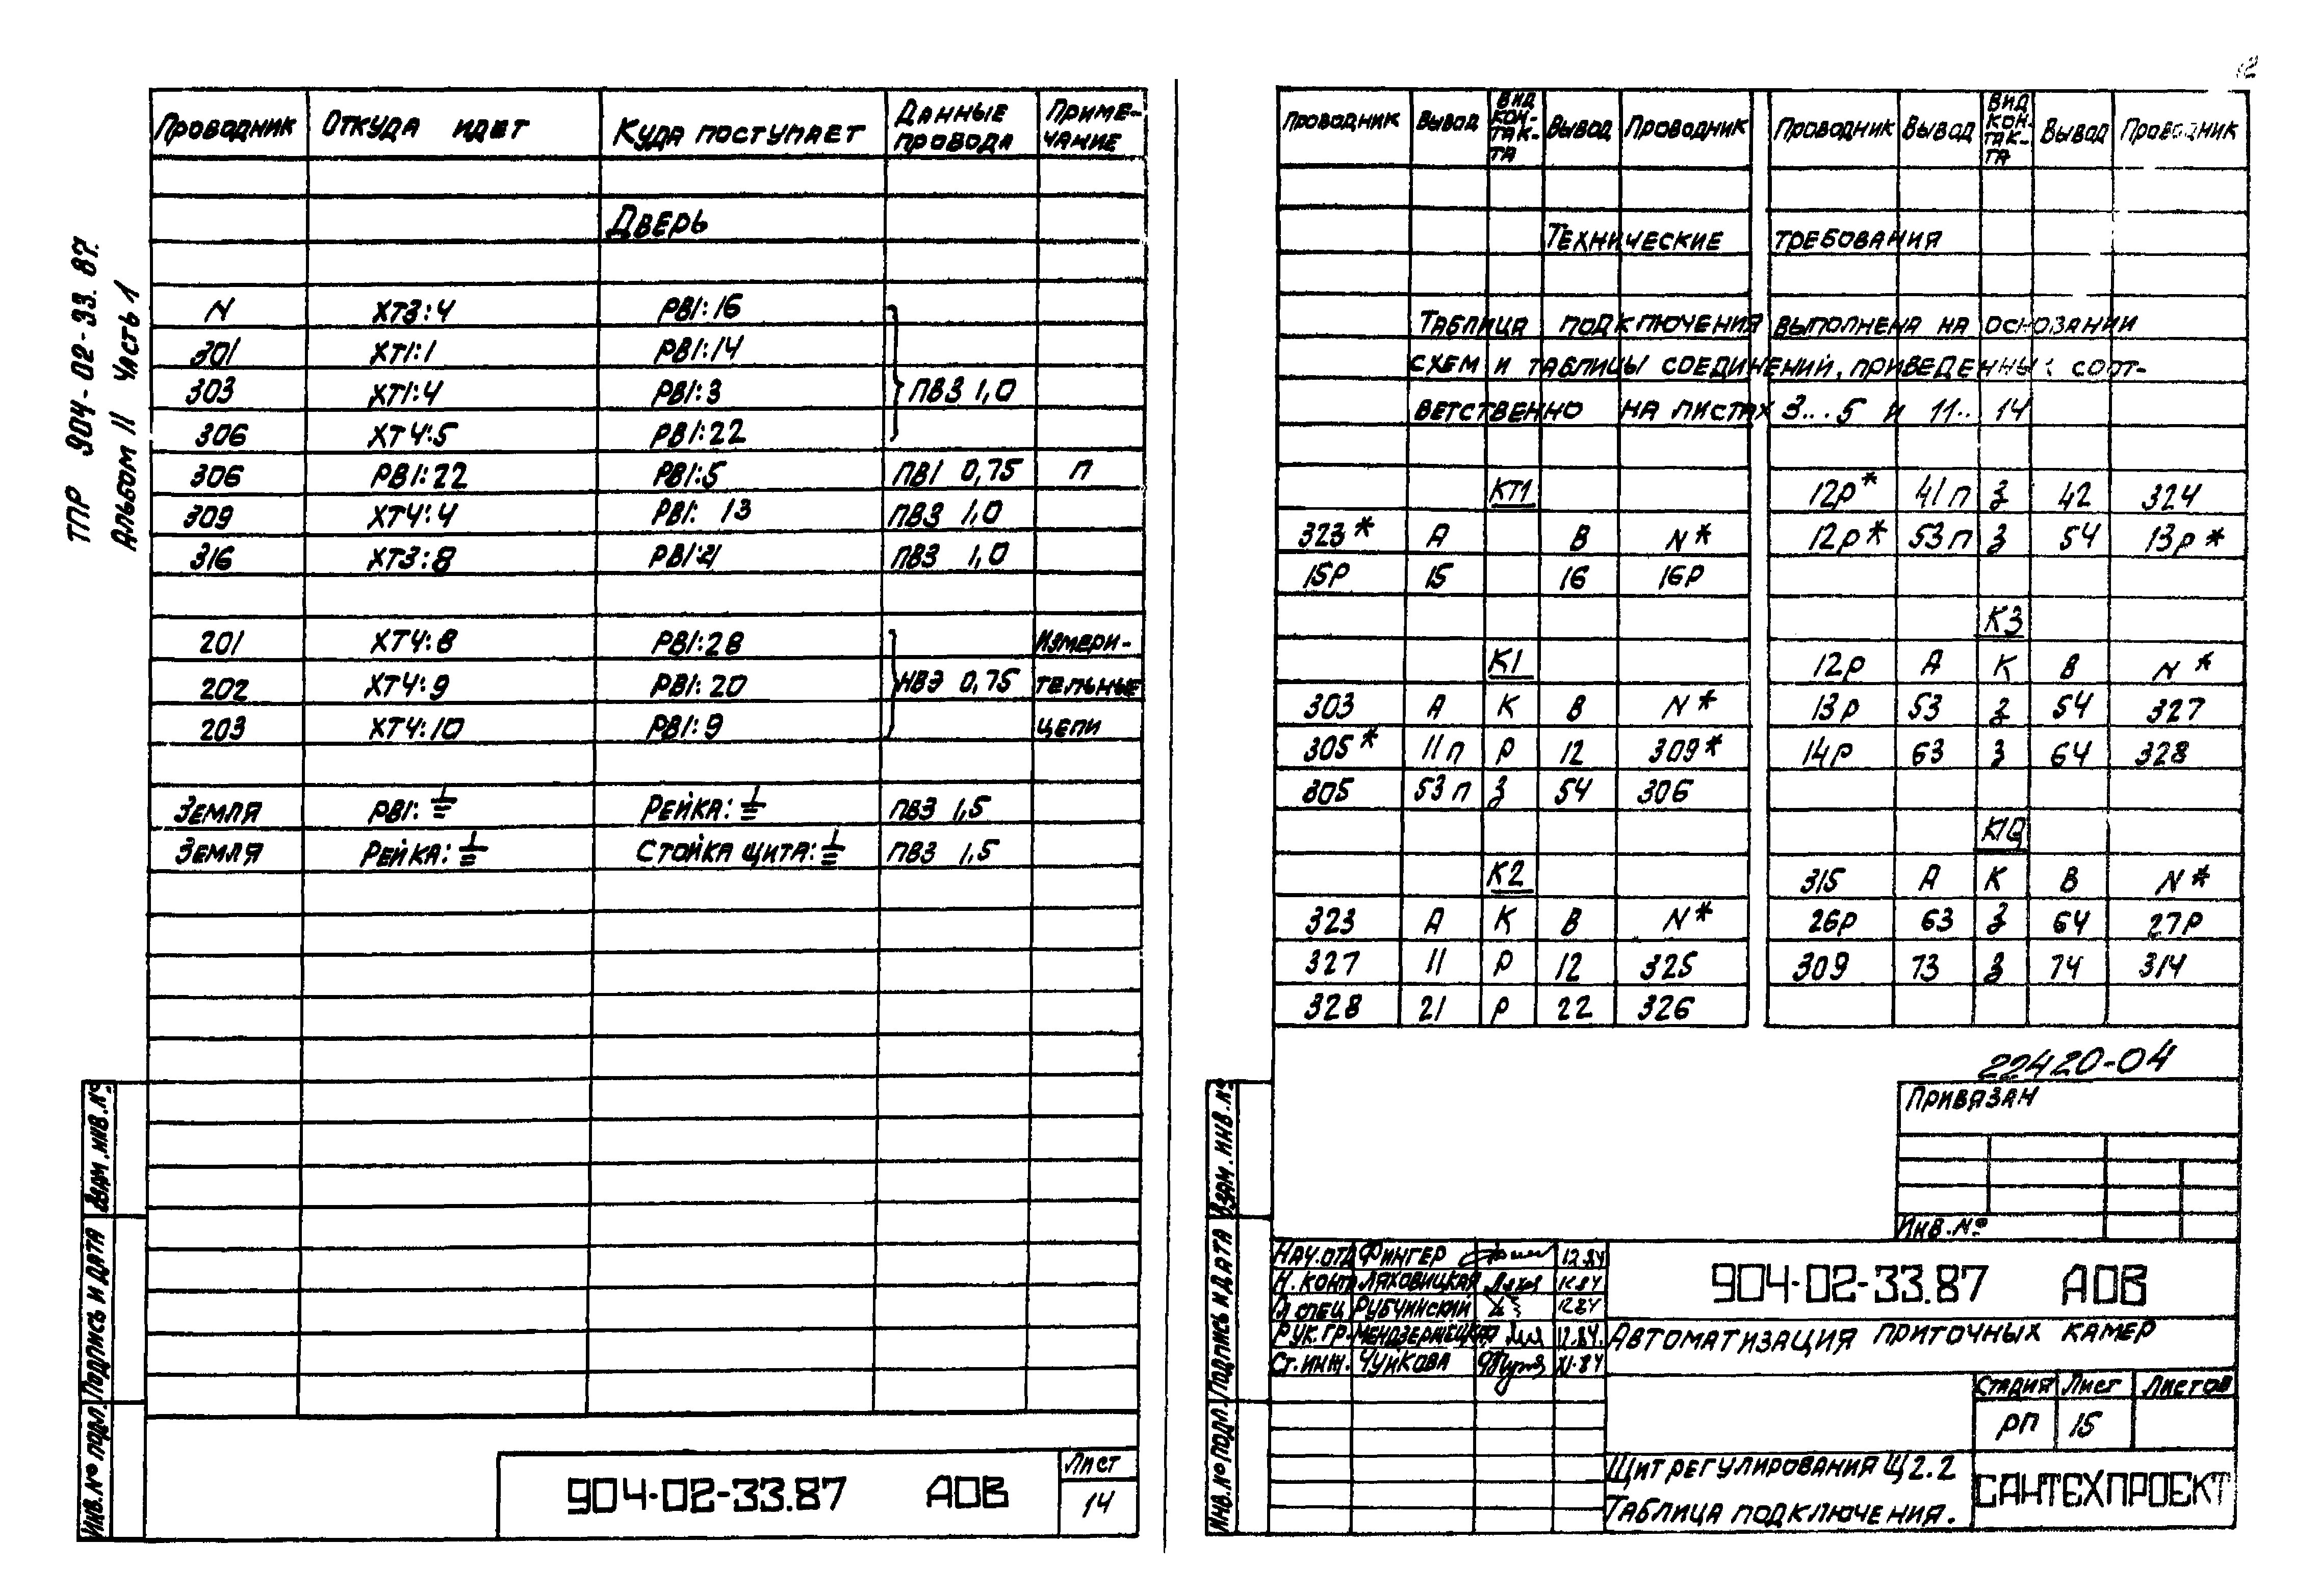 12
ТПР 904-02-33.87.
Альбом II Часть 1
Проводник Откуда идет Куда поступает Данные провода Примечание
Дверь
N ХТ3:4 РВ1:16
301 ХТ1:1 РВ1:14
303 ХТ1:4 РВ1:3 ПВ3 1,0
306 ХТ4:5 РВ1:22
306 РВ1:22 РВ1:5 ПВ1 0,75 П
309 ХТ4:4 РВ1: 13 ПВ3 1,0
316 ХТ3:8 РВ1:21 ПВ3 1,0
201 ХТ4:8 РВ1:28 Измери-
202 ХТ4:9 РВ1:20 НВЭ 0,75 тельные
203 ХТ4:10 РВ1:9 цепи
Земля РВ1:⏚ Рейка:⏚ ПВ3 1,5
Земля Рейка:⏚ Стойка щита:⏚ ПВ3 1,5
Взам.инв.№
Подпись и дата
Инв.№ подл.
904-02-33.87 АОВ
Лист
14
Проводник Вывод Вид контакта Вывод Проводник Проводник Вывод Вид контакта Вывод Проводник
Технические требования
Таблица подключения выполнена на основании
схем и таблицы соединений, приведенных соот-
ветственно на листах 3...5 и 11...14
КТ1 12р* 41п З 42 324
323* А В N* 12р* 53п З 54 13р*
15р 15 16 16р
К3
К1 12р А К В N*
303 А К В N* 13р 53 З 54 327
305* 11п Р 12 309* 14р 63 З 64 328
305 53п З 54 306
К10
К2 315 А К В N*
323 А К В N* 26р 63 З 64 27р
327 11 Р 12 325 309 73 З 74 314
328 21 Р 22 326
22420-04
Привязан
Инв.№
Взам.инв.№
Подпись и дата
Инв.№ подл.
Нач.отд Фингер 12.84
Н.контр Ляховицкая 12.84
Гл спец Рубчинский 12.84
Рук.гр. Мендзержецкая 12.84.
Ст.инж. Чуйкова XI.84
904-02-33.87 АОВ
Автоматизация приточных камер
Стадия Лист Листов
РП 15
Щит регулирования Щ2.2
Таблица подключения.
САНТЕХПРОЕКТ